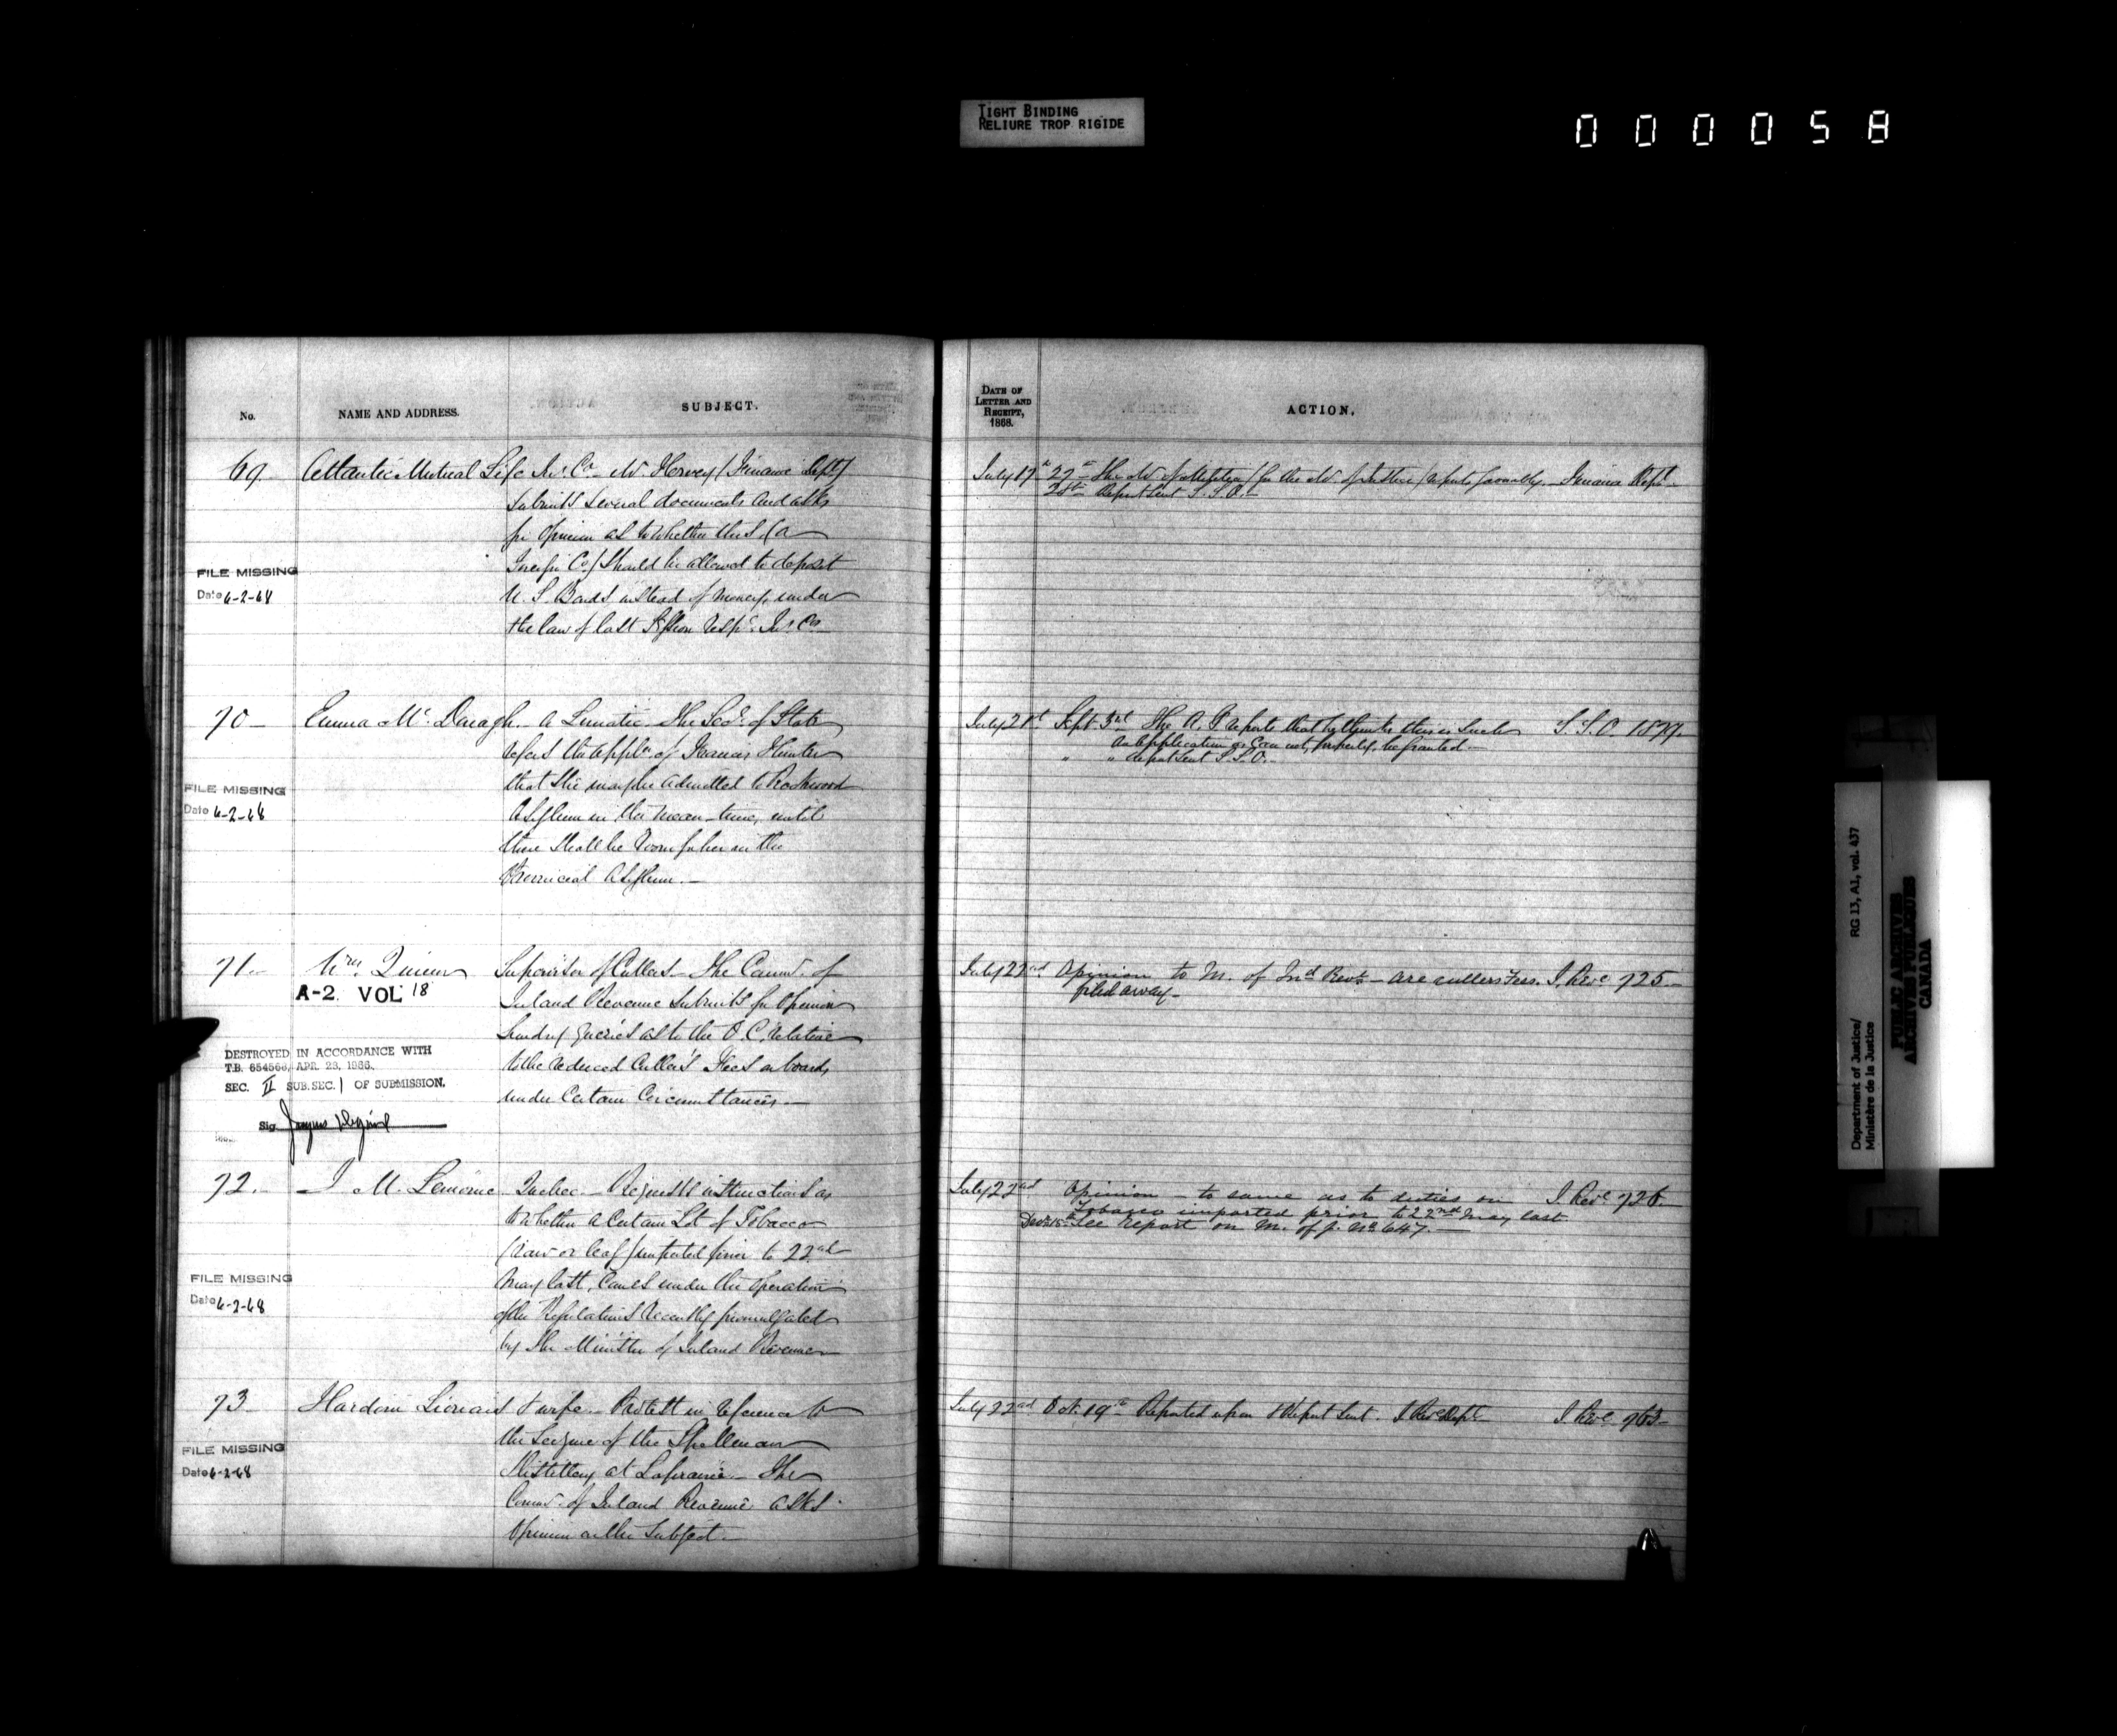 TIGHT BINDING
RELIURE TROP RIGIDE
000058
No.
NAME AND ADDRESS.
SUBJECT.
69.
Atlantic Mutual Life Ins. Co. Mr. Harvey (Finance Dept)
submits several documents and asks
for opinion as to whether this (a
Foreign Co) should be allowed to deposit
U. S. Bonds instead of money, under
the law of last Session resp'g Ins. Cos
FILE MISSING
Date 6-2-68
70
Emma Mc Donagh. a Lunatic. The Secy. of State
refers the appln. of Frances Hunter
that she may be admitted to Rockwood
Asylum in the mean-time, until
there shall be room for her in the
Provincial Asylum.
FILE MISSING
Date 6-2-68
71.
Wm. Quinn Supervisor of Cullers. The Commr. of
A-2 VOL 18
Inland Revenue submits for opinion
sundry queries as to the O. C. relative
to the reduced Cullers Fees on boards
under certain circumstances.
DESTROYED IN ACCORDANCE WITH
T.B. 654566, APR. 23, 1966.
SEC. II SUB.SEC. 1 OF SUBMISSION.
Sig
72.
J M. Lemoine Quebec. Requests instructions as
to whether a certain Lot of Tobacco
(raw or leaf) imported prior to 22nd
May last, comes under the operation
of the Regulations recently promulgated
by the Minister of Inland Revenue
FILE MISSING
Date 6-2-68
73
Hardoin Lionais & wife. Protest in reference to
the seizure of the Spellman
Distillery at Laprairie. The
Commr. of Inland Revenue asks
opinion on the subject.
FILE MISSING
Date 6-2-68
DATE OF
LETTER AND
RECEIPT,
1868.
ACTION.
July 17th 27th The M. of Militia (for the M. of Justice) reports favorably. Finance Dept
28th Report sent S. S. O.
July 21st Sept. 3rd The A. G reports that he thinks this is such S. S. O. 1879.
an application as can not, properly, be granted.
" " report sent S. S. O.
July 22nd Opinion to M. of Ind Revs - are cullers Fees. I. Reve 725.
filed away
July 22nd Opinion - to same as to duties on I. Reve 726.
Tobacco imported prior to 22nd May last
Decr. 15th See report on M. of J. No. 647.
July 22nd Oct. 19th Reported upon & Report sent. I Reve Dept I. Reve 763
Department of Justice/
Ministère de la Justice
RG 13, A1, vol. 437
PUBLIC ARCHIVES
ARCHIVES PUBLIQUES
CANADA